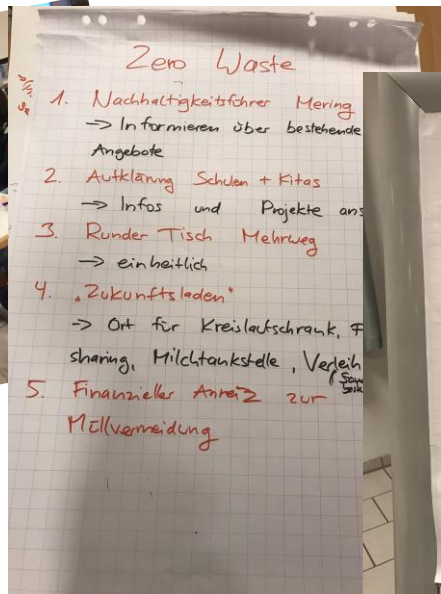 Zero Waste
1. Nachhaltigkeitsführer Mering
-> Informieren über bestehende
Angebote
2. Aufklärung Schulen + Kitas
-> Infos und Projekte ans
3. Runder Tisch Mehrweg
-> einheitlich
4. "Zukunftsladen"
-> Ort für Kreislaufschrank, F
sharing, Milchtankstelle, Verleih
5. Finanzieller Anreiz zur
Müllvermeidung